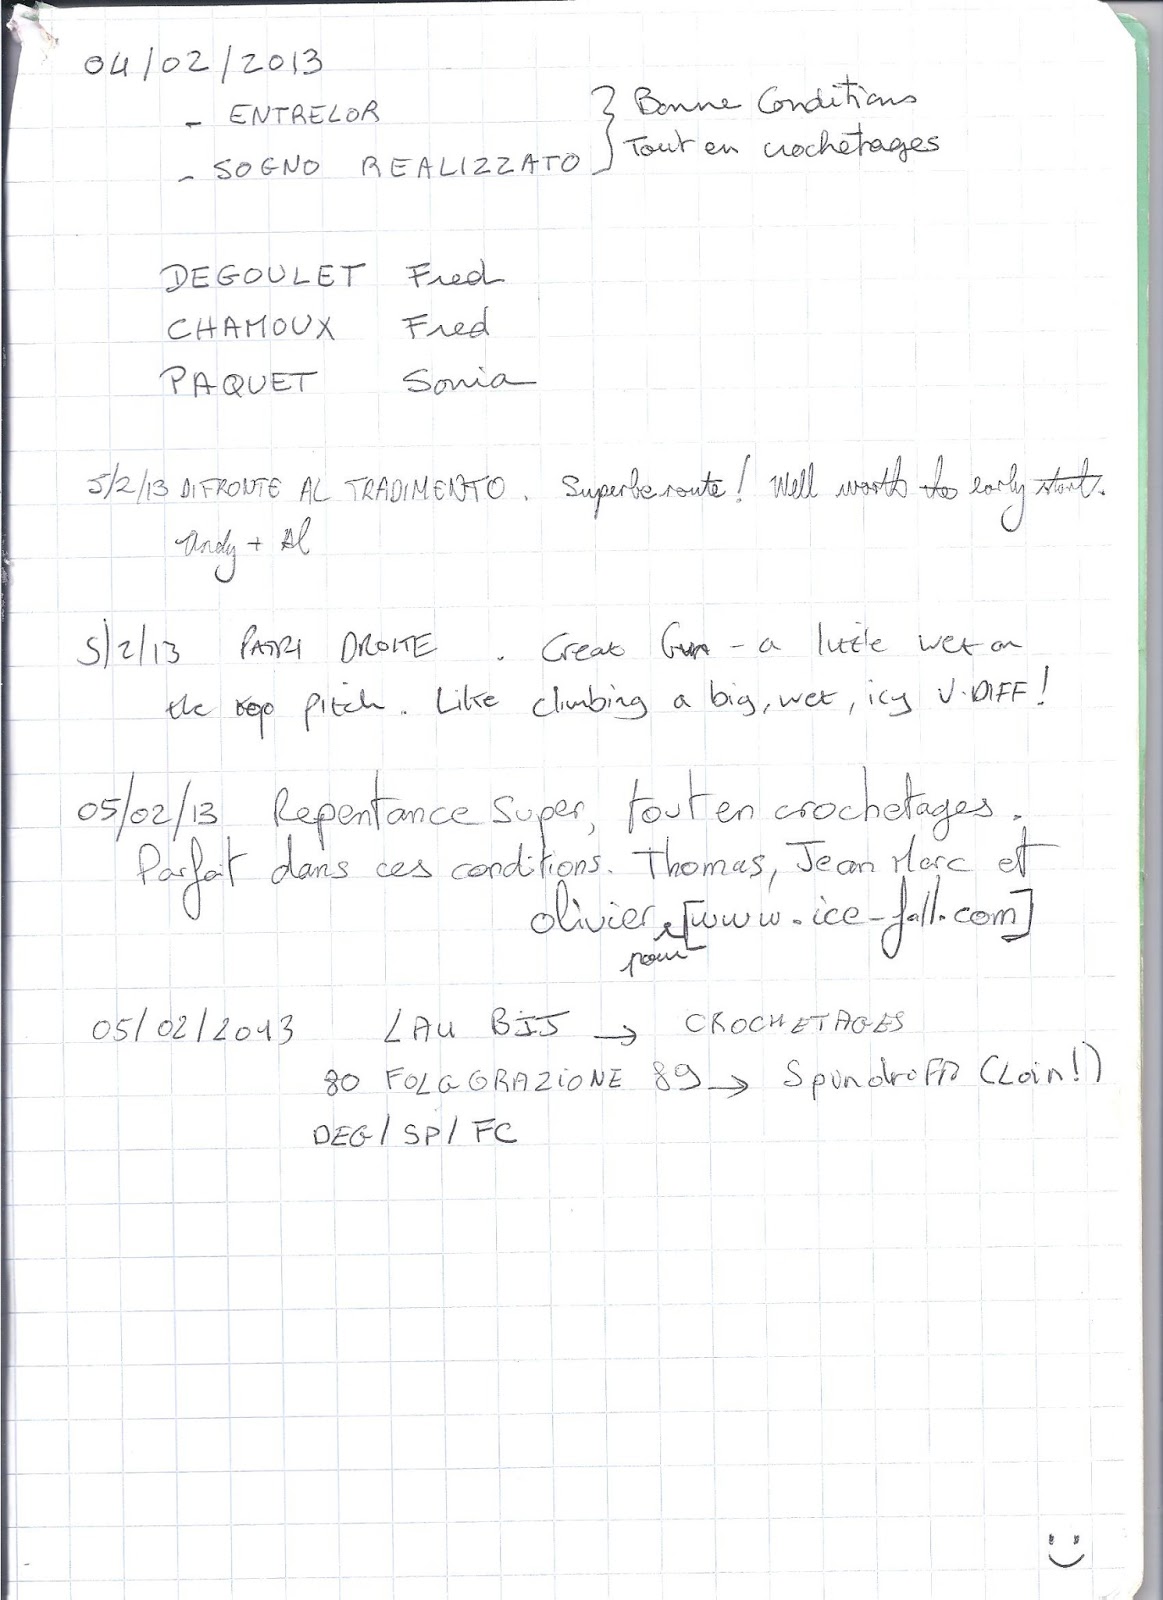 04/02/2013
- ENTRELOR } Bonne Conditions
- SOGNO REALIZZATO } Tout en crochetages
DEGOULET Fred
CHAMOUX Fred
PAQUET Sonia
5/2/13 DIFRONTE AL TRADIMENTO. Superbe route! Well worth the early start.
Andy + Al
5/2/13 PATRI DROITE. Great Gun - a little wet on
the top pitch. Like climbing a big, wet, icy V.DIFF!
05/02/13 Repentance Super, tout en crochetages.
Parfait dans ces conditions. Thomas, Jean Marc et
olivier [www.ice-fall.com]
pour
05/02/2013 LAU BIJ → CROCHETAGES
80 FOLGORAZIONE 89 → SpindrofFt (Loin!)
DEG/SP/FC